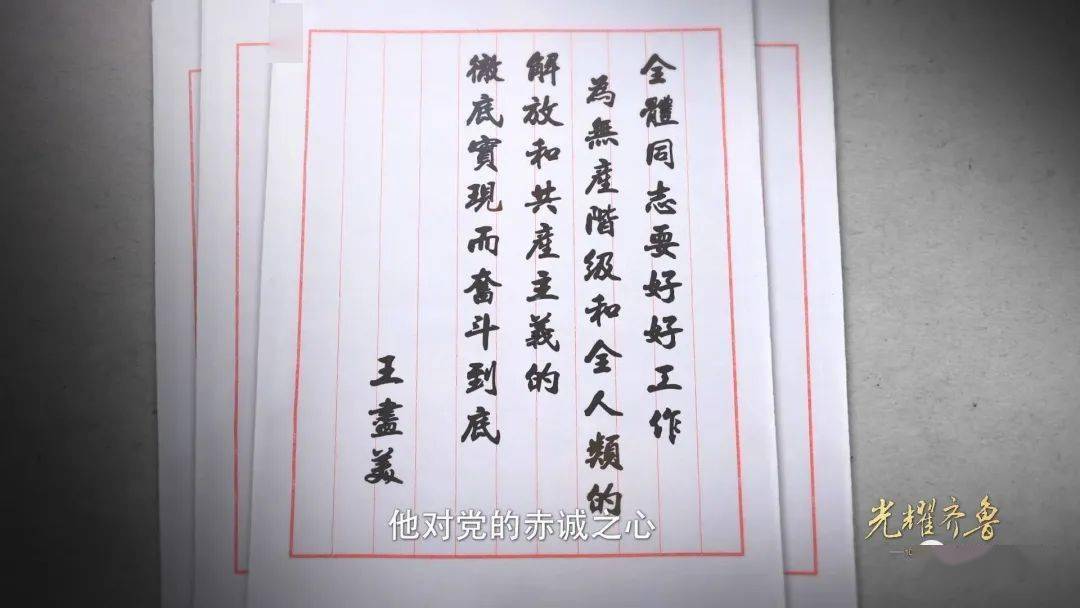 全體同志要好好工作
為無産階級和全人類的
解放和共産主義的
徹底實現而奮斗到底
王盡美
他对党的赤诚之心
光耀齐鲁